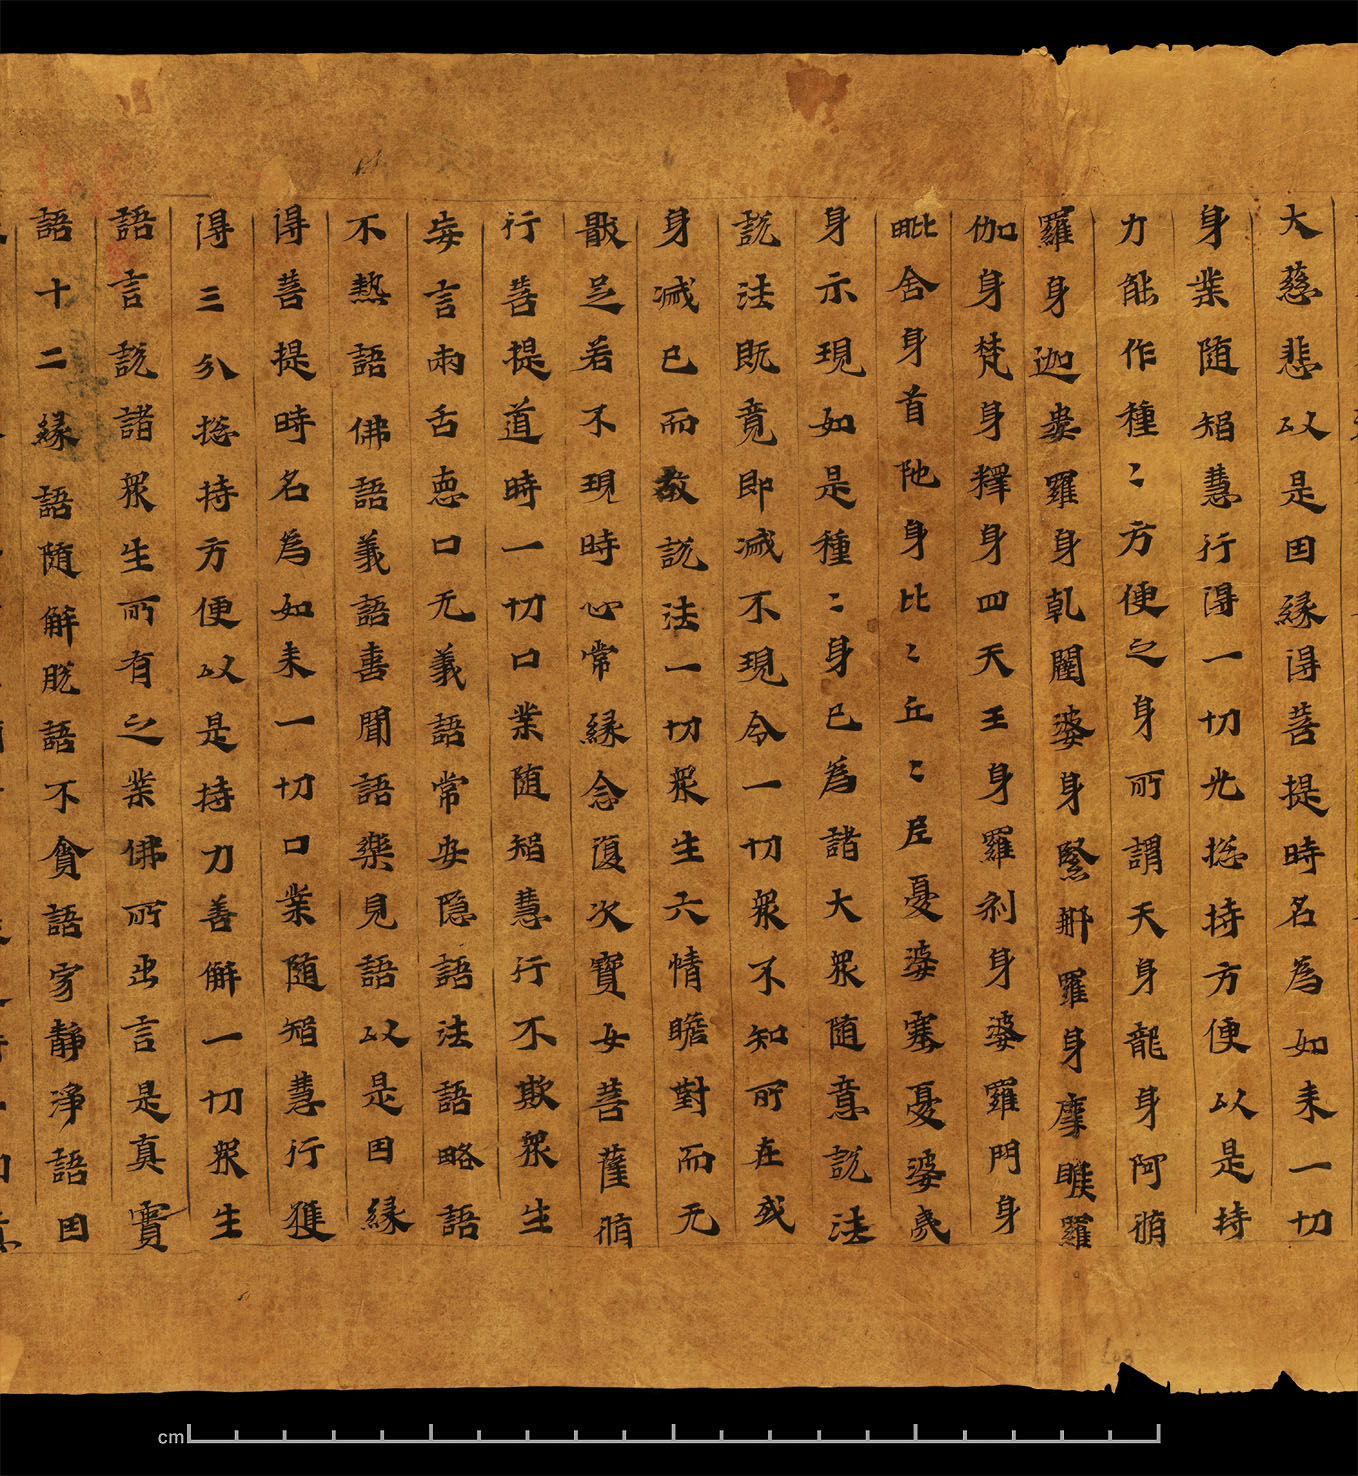 大慈悲以是因緣得菩提時名為如来一切
身業随智慧行得一切光揔持方便以是持
力能作種〻方便之身所謂天身龍身阿脩
羅身迦婁羅身乹闥婆身緊那羅身摩睺羅
伽身梵身釋身四天王身羅刹身婆羅門身
毗舍身首陁身比〻丘〻尼憂婆塞憂婆夷
身示現如是種〻身已為諸大衆随意說法
說法既竟即滅不現令一切衆不知所在或
身滅已而故說法一切衆生六情瞻對而无
猒足若不現時心常緣念復次寶女菩薩脩
行菩提道時一切口業随智慧行不欺衆生
妄言兩舌惡口无義語常安隱語法語略語
不熱語佛語義語喜聞語樂見語以是因緣
得菩提時名為如来一切口業随智慧行獲
得三分揔持方便以是持力善解一切衆生
語言說諸衆生所有之業佛所出言是真實
語十二緣語随解脫語不貪語寂静淨語因
cm